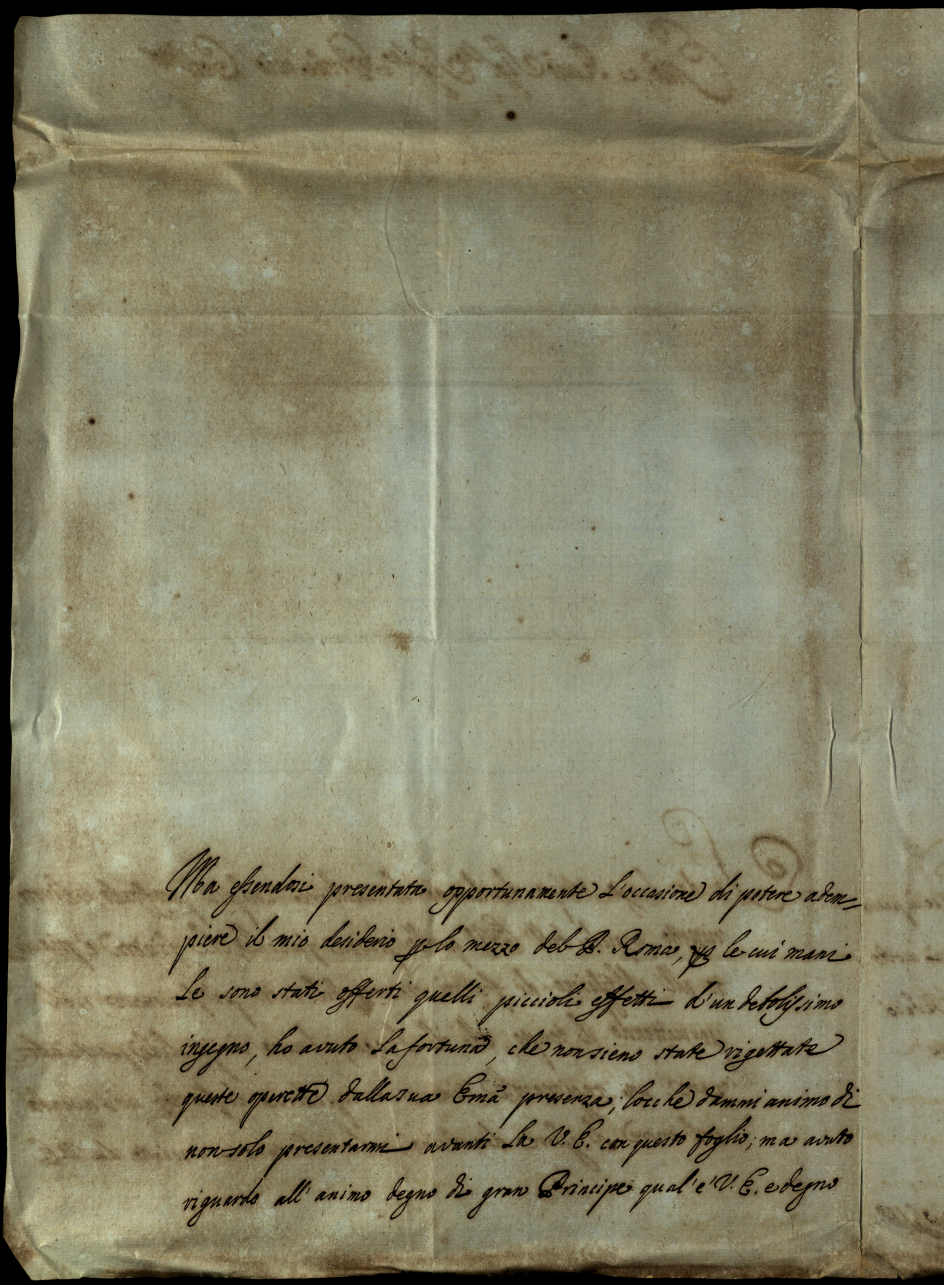 Ma essendosi presentata opportunamente L'occasione di potere adem=
piere il mio desiderio p lo mezzo del P. Roma, p le cui mani
Le sono stati offerti quelli piccioli effetti d'un debolissimo
ingegno, ho avuto La fortuna, che non sieno state rigettate
queste operette dalla sua Emã presenza; locchè dammi animo di
non solo presentarmi avanti La V. E. con questo foglio; ma avuto
riguardo all'animo degno di gran Principe qual'e' V. E. e degno